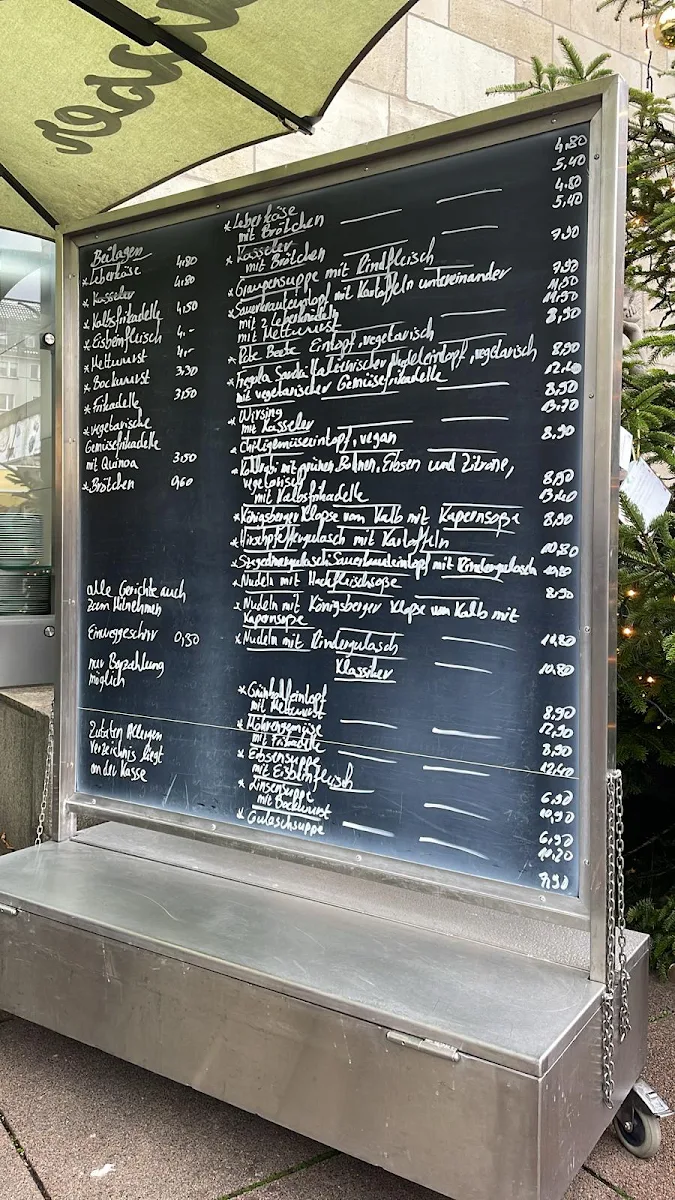 Beilagen
* Leberkäse 4,80
* Kasseler 4,80
* Kalbsfrikadelle 4,50
* Eisbeinfleisch 4,-
* Mettwurst 4,-
* Bockwurst 3,30
* Frikadelle 3,50
* vegetarische
Gemüsefrikadelle
mit Quinoa 3,50
* Brötchen 0,60
alle Gerichte auch
zum Mitnehmen
Einweggeschirr 0,50
nur Barzahlung
möglich
Zutaten Allergen
Verzeichnis liegt
an der Kasse
* Leberkäse 4,80
mit Brötchen 5,40
* Kasseler 4,80
mit Brötchen 5,40
* Graupensuppe mit Rindfleisch 7,90
* Sauerkrauteintopf mit Kartoffeln untereinander 7,90
mit 2 Leberknödeln 11,50
mit Mettwurst 11,90
* Rote Beete Eintopf, vegetarisch 8,90
* Fregola Sarda italienischer Nudeleintopf, vegetarisch 8,90
mit vegetarischer Gemüsefrikadelle 12,40
* Wirsing 8,90
mit Kasseler 13,70
* Chiligemüseeintopf, vegan 8,90
* Kohlrabi mit grünen Bohnen, Erbsen und Zitrone,
vegetarisch 8,90
mit Kalbsfrikadelle 13,40
* Königsberger Klopse vom Kalb mit Kapernsoße 8,90
* Hirschpfeffergulasch mit Kartoffeln 10,80
* Szegedinergulasch Sauerkrauteintopf mit Rindergulasch 10,80
* Nudeln mit Hackfleischsoße 8,90
* Nudeln mit Königsberger Klopse vom Kalb mit
Kapernsoße
* Nudeln mit Rindergulasch 10,80
Klassiker
* Grünkohleintopf 8,90
mit Mettwurst 12,90
* Möhrengemüse 8,90
mit Frikadelle 12,40
* Erbsensuppe 6,90
mit Eisbeinfleisch 10,90
* Linsensuppe 6,90
mit Bockwurst 10,20
* Gulaschsuppe 7,90